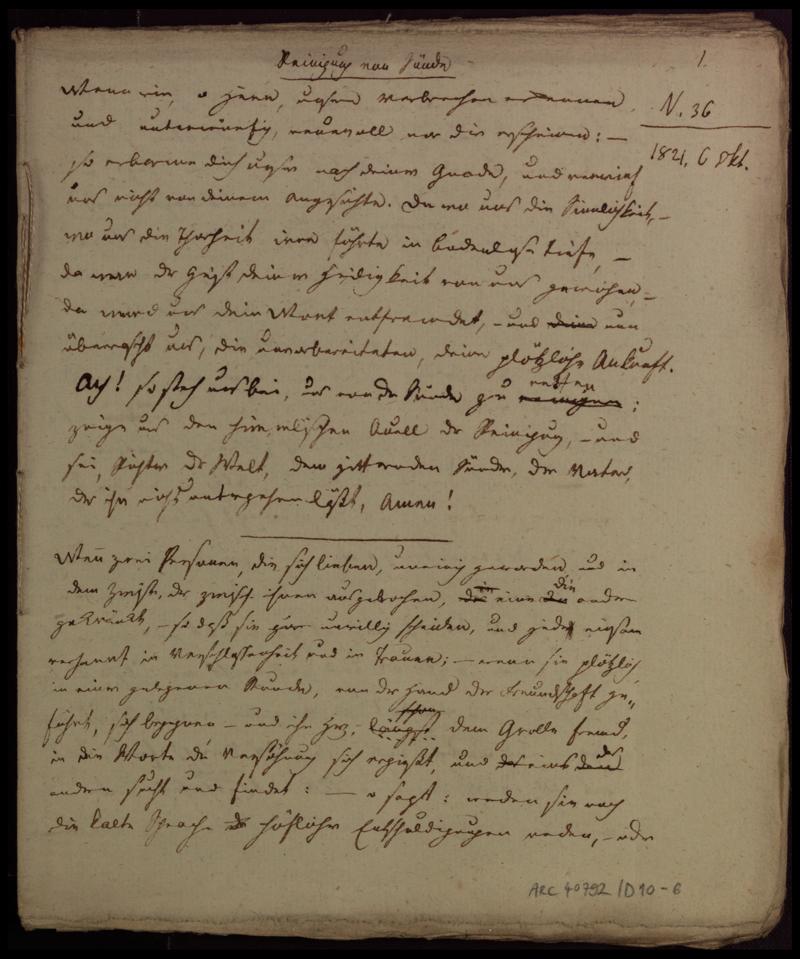 Reinigung von Sünde
1.
Wenn wir, o Herr, unsere Verbrechen erkennen
N. 36
und unterwürfig, reuevoll vor dir erscheinen: —
1821, 6 Okt.
so erbarme dich unser nach deiner Gnade, und verwirf
uns nicht von deinem Angesichte. Da wo uns die Sinnlichkeit, —
wo uns die Thorheit irre führte in bodenlose Tiefe, —
da war der Geist deiner Heiligkeit von uns gewichen, —
da ward uns dein Wort entfremdet, – und deine nun
überrascht uns, die unvorbereiteten, deine plötzliche Ankunft.
Ach! so steh uns bei, uns von der Sünde zu reinigen retten;
zeige uns den himmlischen Quell der Reinigung, – und
sei, Richter der Welt, dem zitternden Sünder, der Vater,
der ihn nicht untergehen läßt, Amen!
Wenn zwei Personen, die sich lieben, uneinig geworden, und in
dem Zwiste, der zwischen ihnen ausgebrochen, eine die andere
gekränkt, – so daß sie gar unwillig scheiden, und jede einsam
verharrt in Verschlossenheit und in Trauer; – wenn sie plötzlich
in einer gelegenen Stunde, von der Hand der Freundschaft ge„
führt, sich begegnen – und ihr Herz, längst schon dem Grolle fremd,
in die Worte der Versöhnung sich ergießt, und eins das
andere sucht und findet: — o sagt: werden sie noch
die kalte Sprache höflicher Entschuldigungen reden, – oder
ARC 4° 792 / D10-6